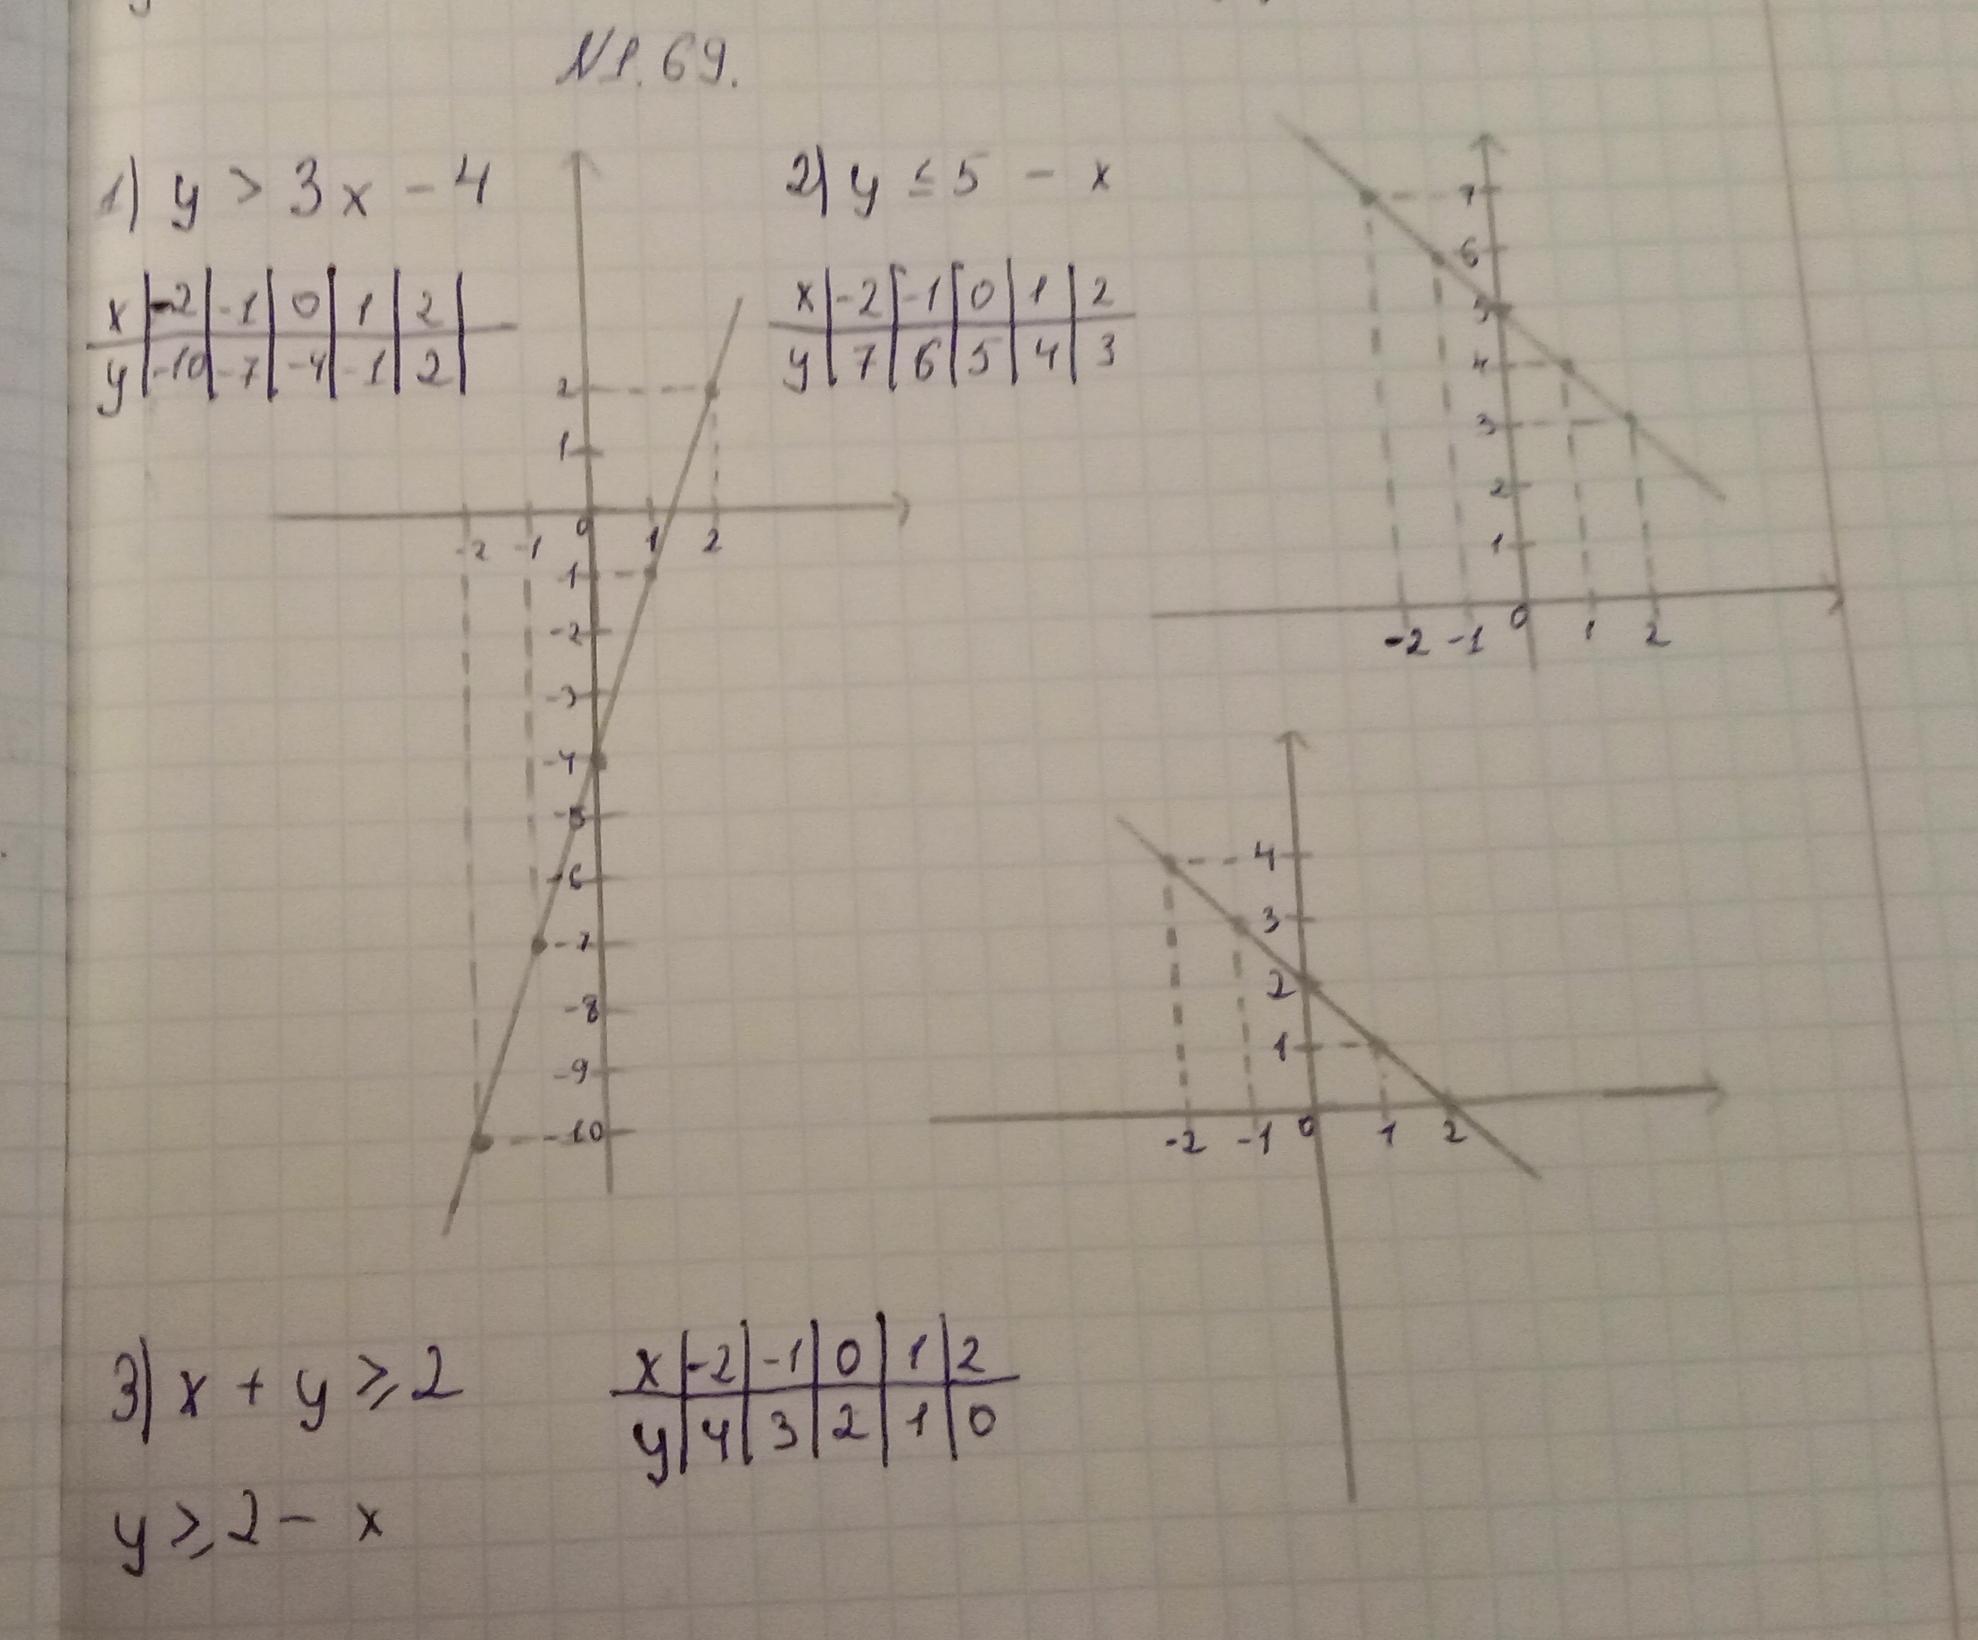 N1.69.
1) y > 3x - 4
x | -2 | -1 | 0 | 1 | 2 |
y | -10 | -7 | -4 | -1 | 2 |
2
1
-2 -1 0 1 2
-1
-2
-3
-4
-5
-6
-7
-8
-9
-10
2) y ≤ 5 - x
x | -2 | -1 | 0 | 1 | 2
y | 7 | 6 | 5 | 4 | 3
7
6
5
4
3
2
1
-2 -1 0 1 2
4
3
2
1
-2 -1 0 1 2
3) x + y ⩾ 2
x | -2 | -1 | 0 | 1 | 2
y | 4 | 3 | 2 | 1 | 0
y ⩾ 2 - x